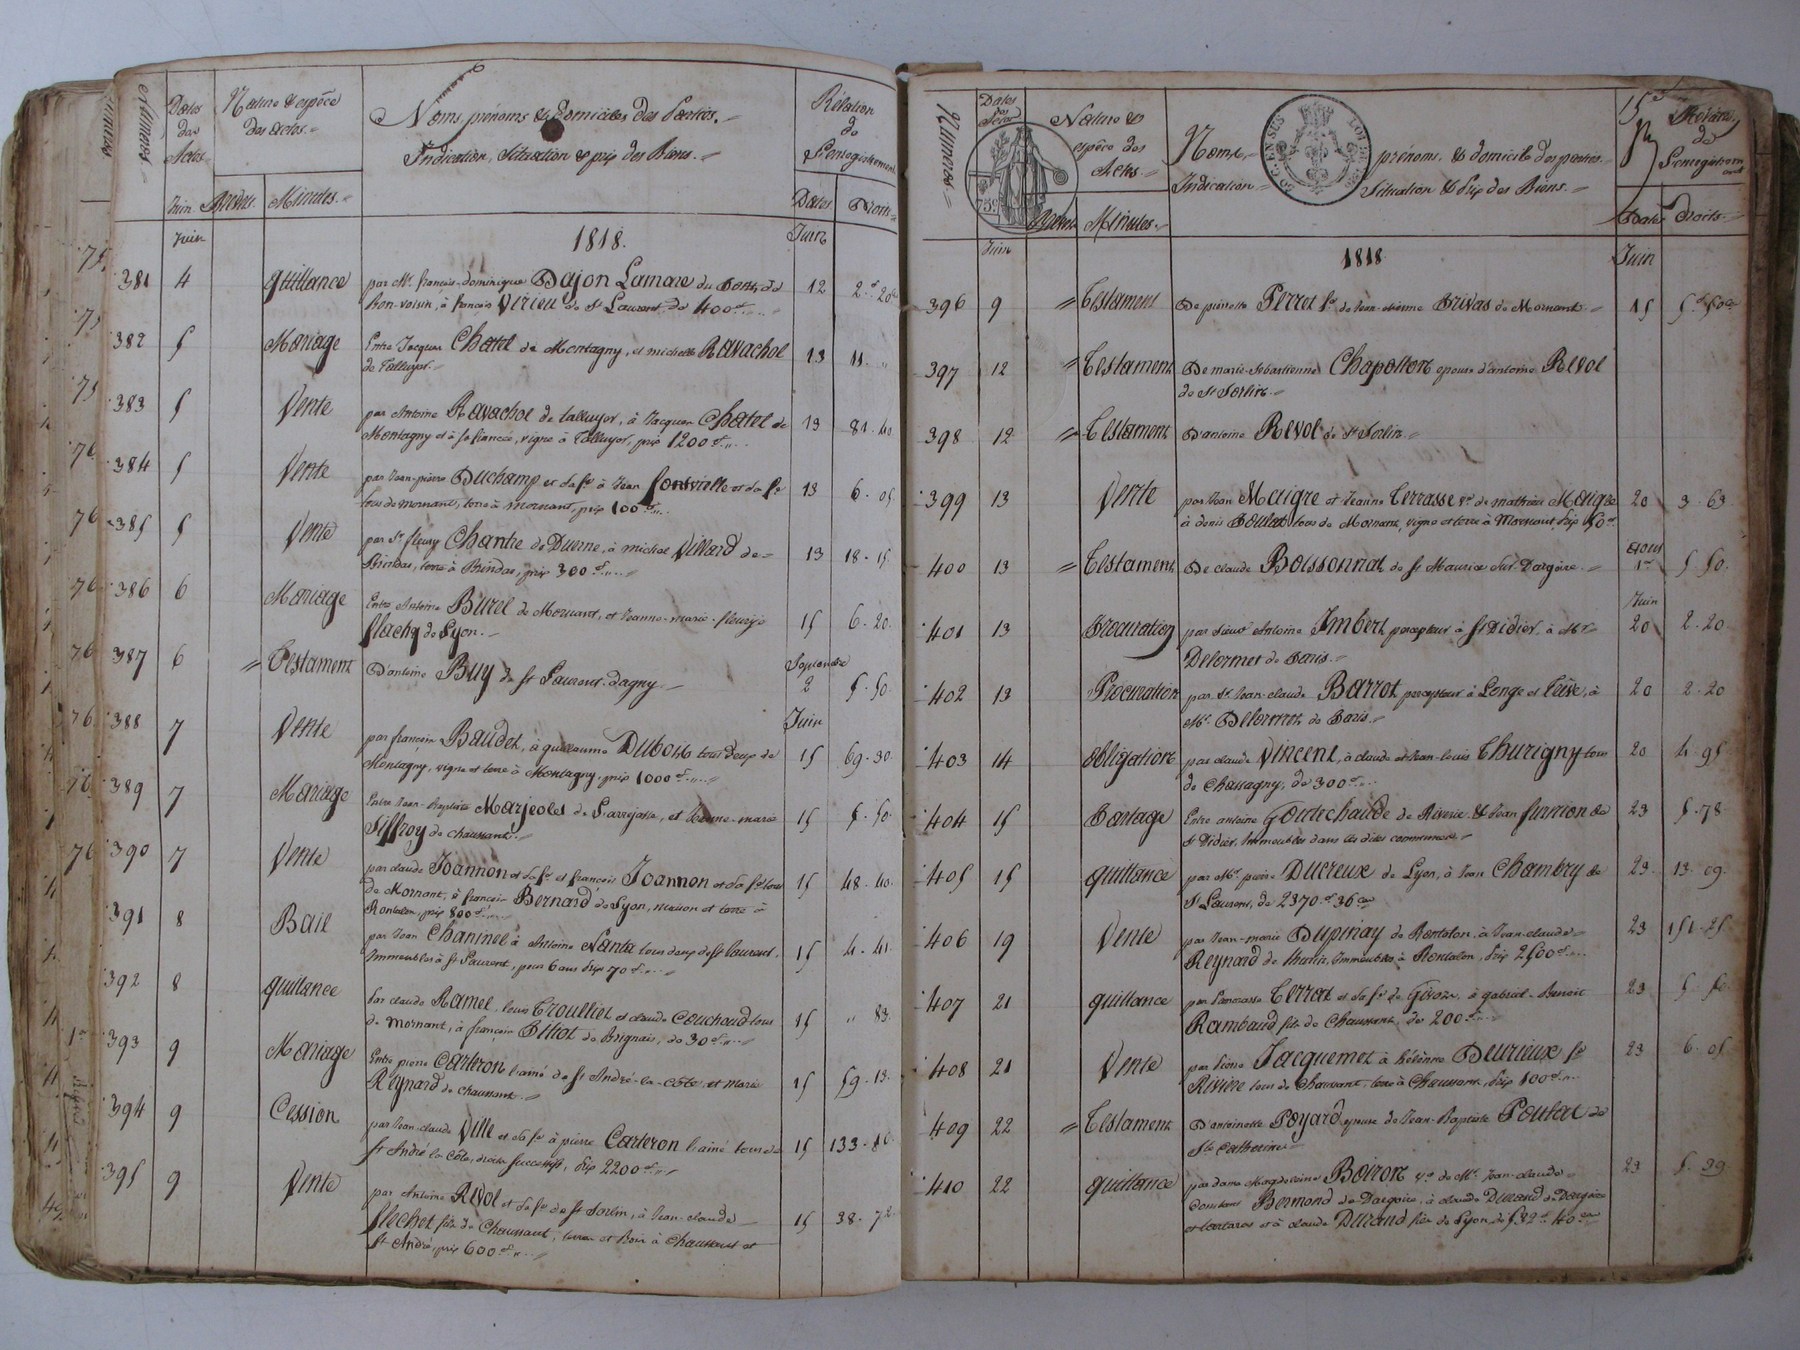 Numéros
Dates des Actes
Nature & espèce des actes.
Noms, prénoms & Domiciles des Parties.
Indication, Situation & prix des Biens.
Rélation de l'enregistrement
Juin Brevets Minutes.
Dates Droits
Juin 1818. Juin
381 4 quittance par Mr. françois-dominique Dajon Lamare du Pont-de
Bon-voisin, à françois Virieu de St Laurent, de 400 f. 12 2 f 20 c
382 5 Mariage Entre Jacques Chatel de Montagny, et michelle Ravachol
de Talluyer. 13 11 "
383 5 Vente par Antoine Ravachol de talluyer, à Jacques Chatel de
Montagny et à sa fiancée, vigne à Talluyer, prix 1200 f. 13 81. 40
384 5 Vente par Jean-pierre Duchamp et sa fe à Jean fonvielle et sa fe
tous de mornant, terre à mornant, prix 100 f. 13 6. 05
385 5 Vente par St. fleury Chantre de Duerne, à michel Villard de
Brindas, terre à Brindas, prix 300 f. 13 18. 15
386 6 Mariage Entre Antoine Burel de Mornant, et Jeanne-marie-fleurye
flachy de Lyon. 15 6. 20
387 6 Testament D'antoine Buy de St Laurent-dagny. Septembre 2 5. 50
Juin
388 7 Vente par françois Baudet, à guillaume Dubois tous deux de
Montagny, vigne et terre à Montagny, prix 1000 f. 15 69. 30
389 7 Mariage Entre Jean-Baptiste Marjeoles de Larrejasse, et Jeanne-marie
Siffroy de chaussant. 15 5. 50
390 7 Vente par claude Joannon et sa fe et françois Joannon et sa fe tous
de Mornant, à françois Bernard de Lyon, maison et terre à
Rontalon, prix 800 f. 15 48. 40
391 8 Bail par Jean Chaninel à Antoine Nanta tous deux de St laurent,
Immeubles à St Laurent, pour 6 ans prix 70 f. 15 4. 41
392 8 quittance Par claude Ramel, louis Troulliet et claude Couchoud tous
de mornant, à françois de Brignais, de 30 f. 15 " 83
393 9 Mariage Entre pierre Carteron l'ainé de St André-la-Côte, et Marie
Reynard de chaussant. 15 59. 13
394 9 Cession par Jean-claude Ville et sa fe à pierre Carteron l'ainé tous de
St André la Côte, droits successifs, prix 2200 f. 15 133. 10
395 9 Vente par Antoine Revol et sa fe de St Sorlin, à Jean-claude
flechet fils de Chaussant, terre et Bois à Chaussant et
St André, prix 600 f. 15 38. 72
Numéros.
Dates des Actes
Nature & espèce des Actes.
Noms, prénoms, & domicile des parties.
Indication, Situation & Prix des Biens.
de l'enregistrement
Brevets Minutes. Dates Droits
75 c
Juin 1818 Juin
396 9 Testament De pierrette Perret fe. de Jean-etienne Privas de Mornant. 15 5 f 50 c
397 12 Testament De marie-Sebastienne Chapotton epouse d'antoine Revol
de St Sorlin.
398 12 Testament D'antoine Revol de St Sorlin
399 13 Vente par Jean Maigre et Jeanne Terrasse ve. de mathieu Maigre
à denis Poulat tous de Mornant, vigne et terre à Mornant, prix 50 f. 20 3. 63
400 13 Testament De claude Boissonnat de St Maurice sur Dargoire. aout 1er 5 50.
401 13 Procuration par sieur Antoine Imbert, percepteur à St Didier, à Mr
Delormet de Paris. Juin 20 2. 20
402 13 Procuration par St. Jean-claude Barrot, percepteur à Longe et Trêve, à
Mr. Delormet de Paris. 20 2. 20
403 14 Obligation par claude Vincent, à claude et Jean-louis Thurigny tous
de Chassagny, de 300 f. 20 4. 95
404 15 Partage Entre antoine Goutechaude de Riverie & Jean furnion de
St Didier, Immeubles dans les dites communes 23 5. 78
405 15 quittance par Mr. pierre Ducreux de Lyon, à Jean Chambry de
St Laurent, de 2370 f 36 c 23. 13. 09
406 19 Vente par Jean-marie Dupinay de Rontalon, à Jean-claude
Reynard de Thurins, Immeubles à Rontalon, prix 2500 f. 23 151. 25
407 21 quittance par Pancrasse Terrat et sa fe de Givors, à gabriel-Benoit
Rambaud fils de Chaussant, de 200 f. 23. 5. 50
408 21 Vente par Pierre Jacquemet à hélénne Deurieux fe
Rivière tous de Chaussant, terre à Chaussant, prix 100 f. 23 6. 05
409 22 Testament D'antoinette Poyard epouse de Jean-Baptiste Poulat de
Ste Catherine.
410 22 quittance par dame Magdeleine Boiron ve. de Mr. Jean-claude
Bermond de Dargoire, à claude Durand de Dargoire
et à claude Durand fils de Lyon, de 532 f 40 c 23 5. 39